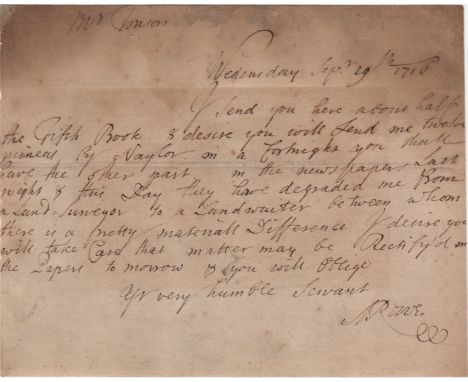 Mr Tonson
Wedensday Sepr 19th 1716
I Send you here about half
the Fifth Book & desire you will Send me twelve
guineas by Naylor in a fortnight you shall
have the other part in the newspapers Last
night & this Day they have degraded me from
a Land-Surveyor to a Landwaiter between whom
there is a pretty materiall Difference I desire you
will take Care that matter may be Rectify'd in
the Papers to morrow & you will Oblige
Yr very humble Servant
N Rowe